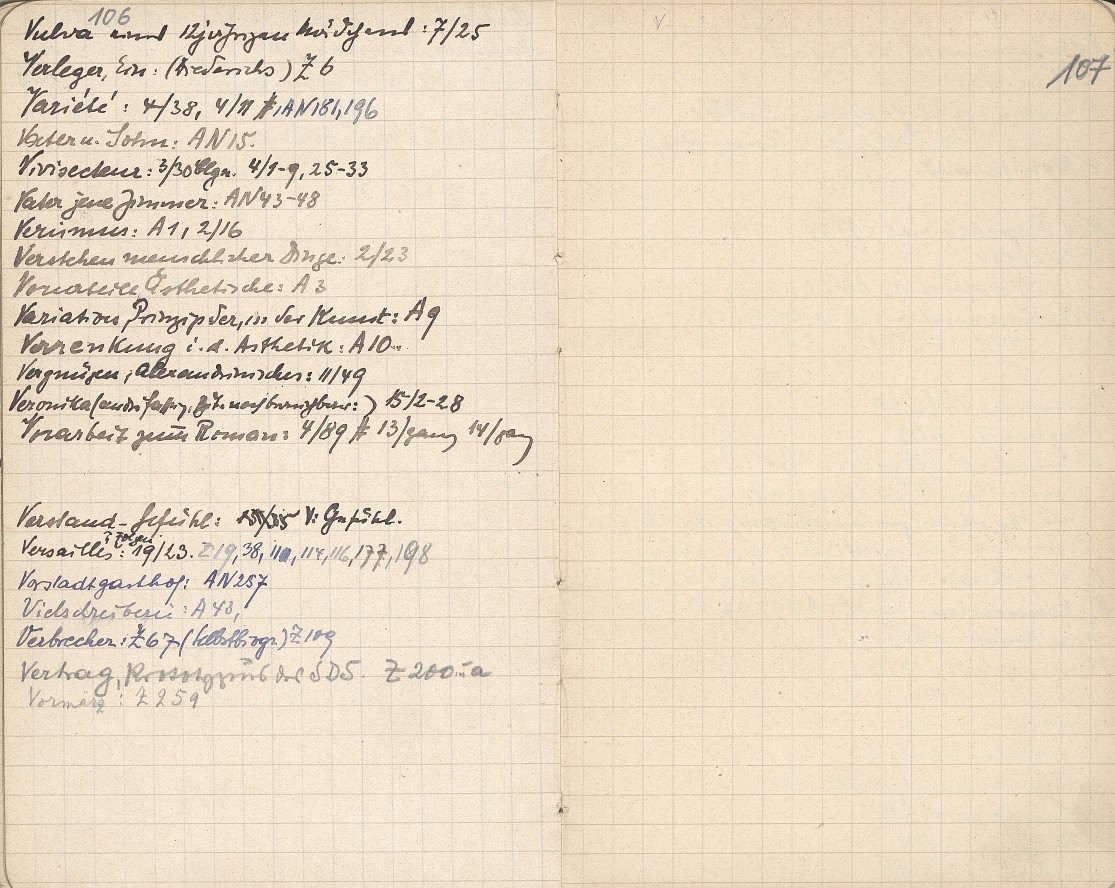 106
Vulva eines 12jährigen Mädchens: 7/25
Verleger, Ein: (Diederichs) Z 6
Variété: 4/38, 4/11 AN 181, 196
Vater u. Sohn: AN 15.
Vivisecteur: 3/30 4/1-9, 25-33
Vater jene Zimmer: AN 43-48
Verismus: A 1, 2/16
Verstehen menschlicher Dinge: 2/23
Vorurteile, Ästhetische: A 3
Variation, Prinzip der, in der Kunst: A 9
Verrenkung i. d. Ästhetik: A 10.
Vergnügen, alexandrinisches: 11/49
Veronika 15/2-28
Vorarbeit zum Roman: 4/89 # 13/ganz 14/ganz
Verstand-Gefühl: V: Gefühl.
Versailles: 19/23. Z 19, 38, 110, 114, 116, 177, 198
Vorstadtgasthof: AN 257
Vielschreiberei: A 43,
Verbrecher: Z 67 (Selbstbiogr.) Z 109
Vertrag, des SDS. Z 200
Vormärz: Z 259
V
107